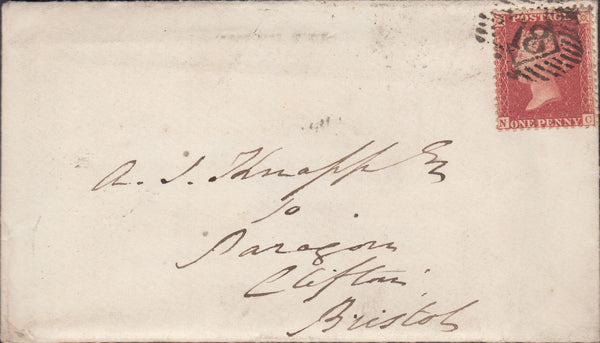 POSTAGE
18
N ONE PENNY G
A. J. Knapp Esq
10
Paragon
Clifton
Bristol